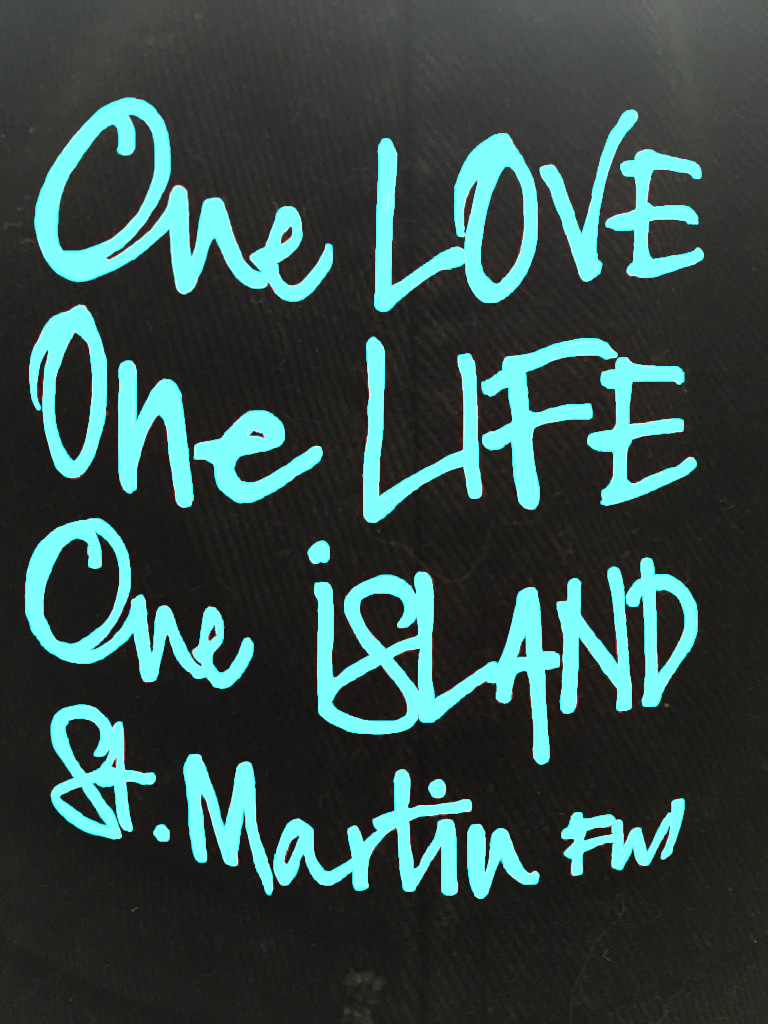 One LOVE
One LIFE
One iSLAND
St. Martin FWI